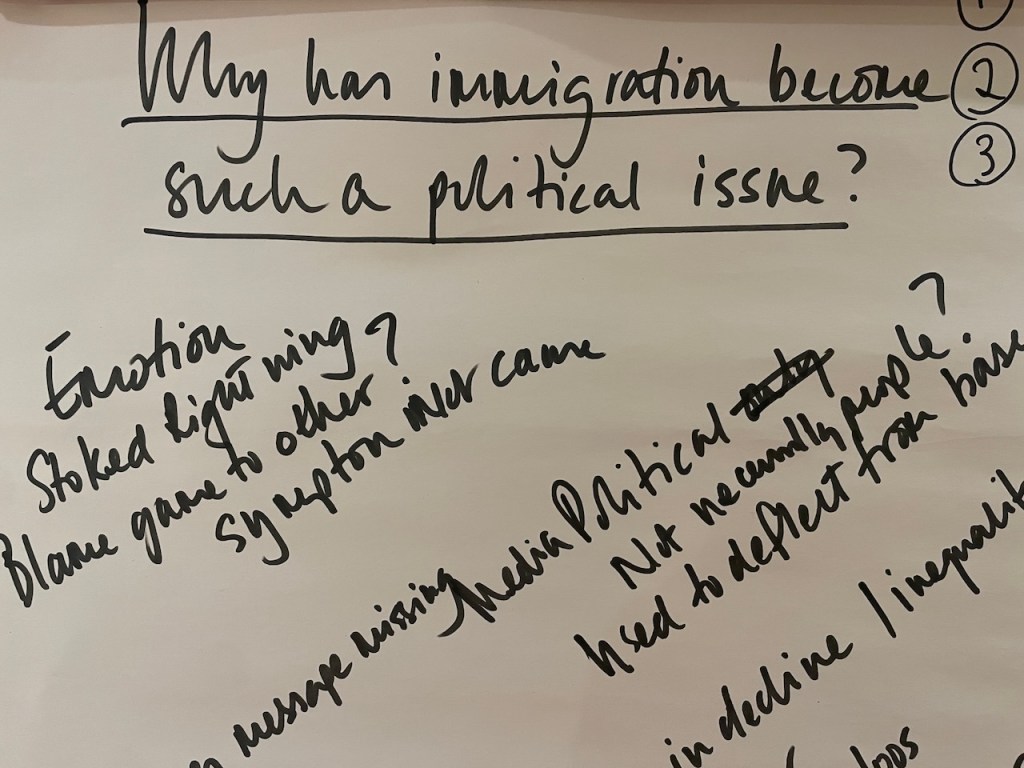 Why has immigration become
such a political issue?
①
②
③
Emotion
Stoked Right wing?
Blame game to other
symptom not cause
message missing
Media Political
Not necessarily people?
Used to deflect from
in decline / inequalit